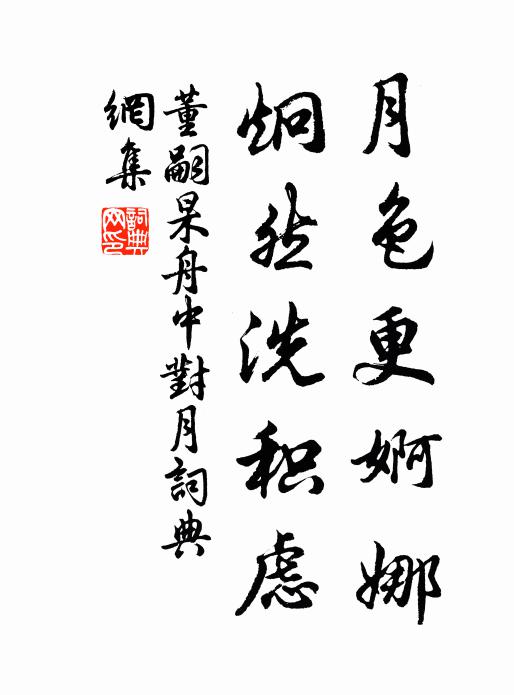 月色更婀娜
炯然洗积虑
董嗣杲舟中對月詞典
網集
詞典網印